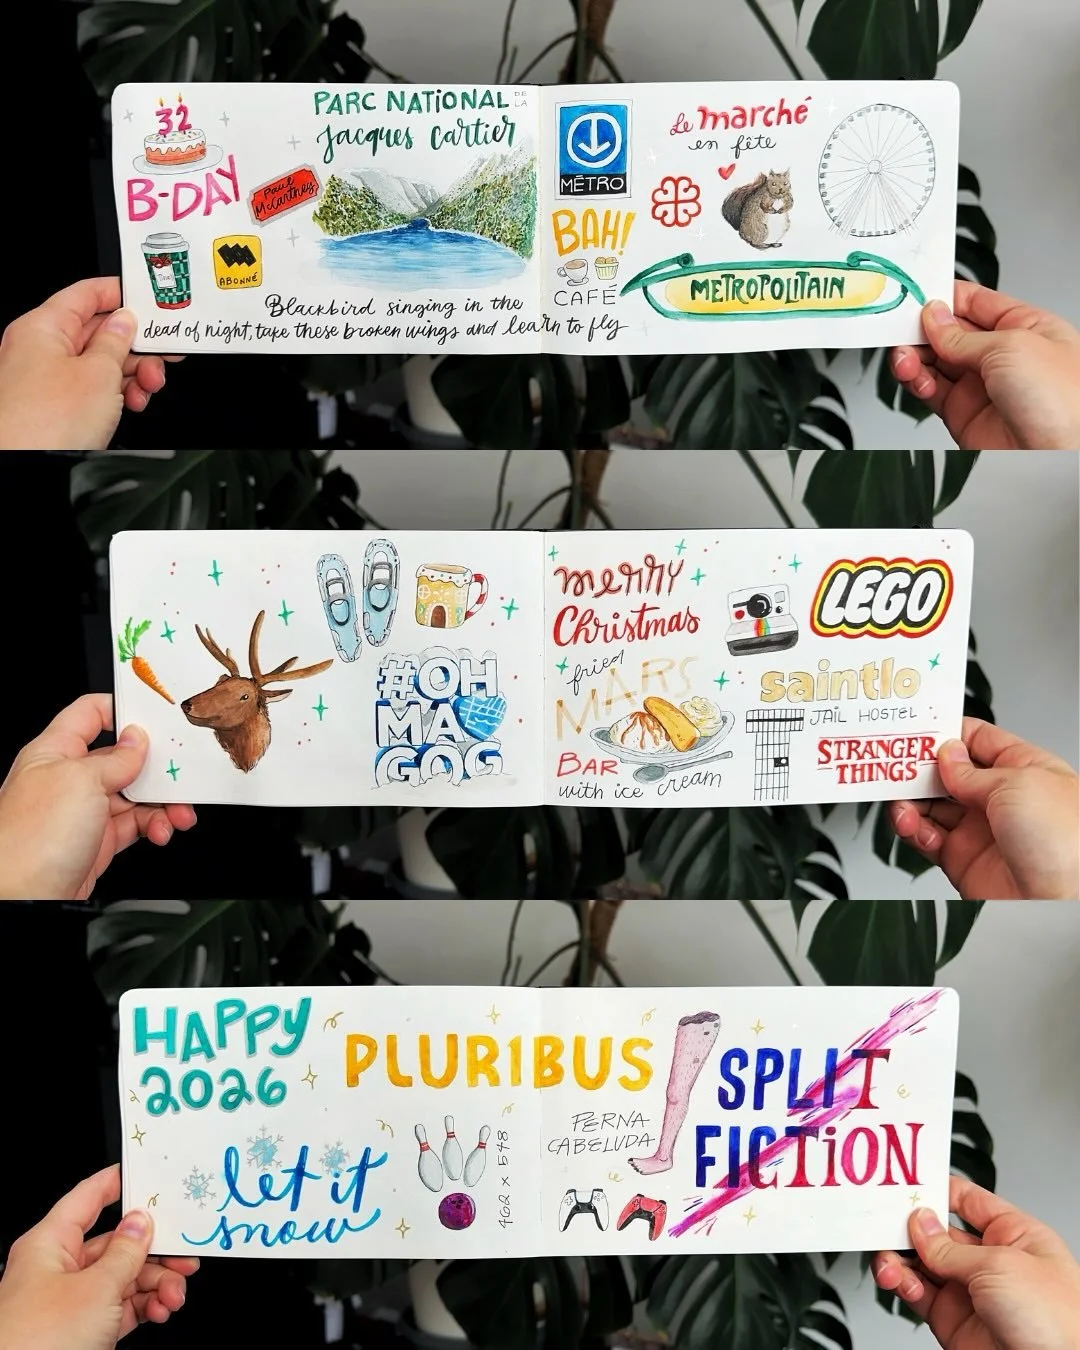 32
B-DAY
Paul
McCartney
ABONNÉ
PARC NATIONAL DE LA
Jacques Cartier
Blackbird singing in the
dead of night, take these broken wings and learn to fly
MÉTRO
BAH!
CAFÉ
Le marché
en fête
METROPOLITAIN
#OH
MA
GOG
merry
Christmas
fried
MARS
BAR
with ice cream
LEGO
saintlo
JAIL HOSTEL
STRANGER
THINGS
HAPPY
2026
let it
snow
PLURIBUS
462 x 548
PERNA
CABELUDA
SPLIT
FICTION